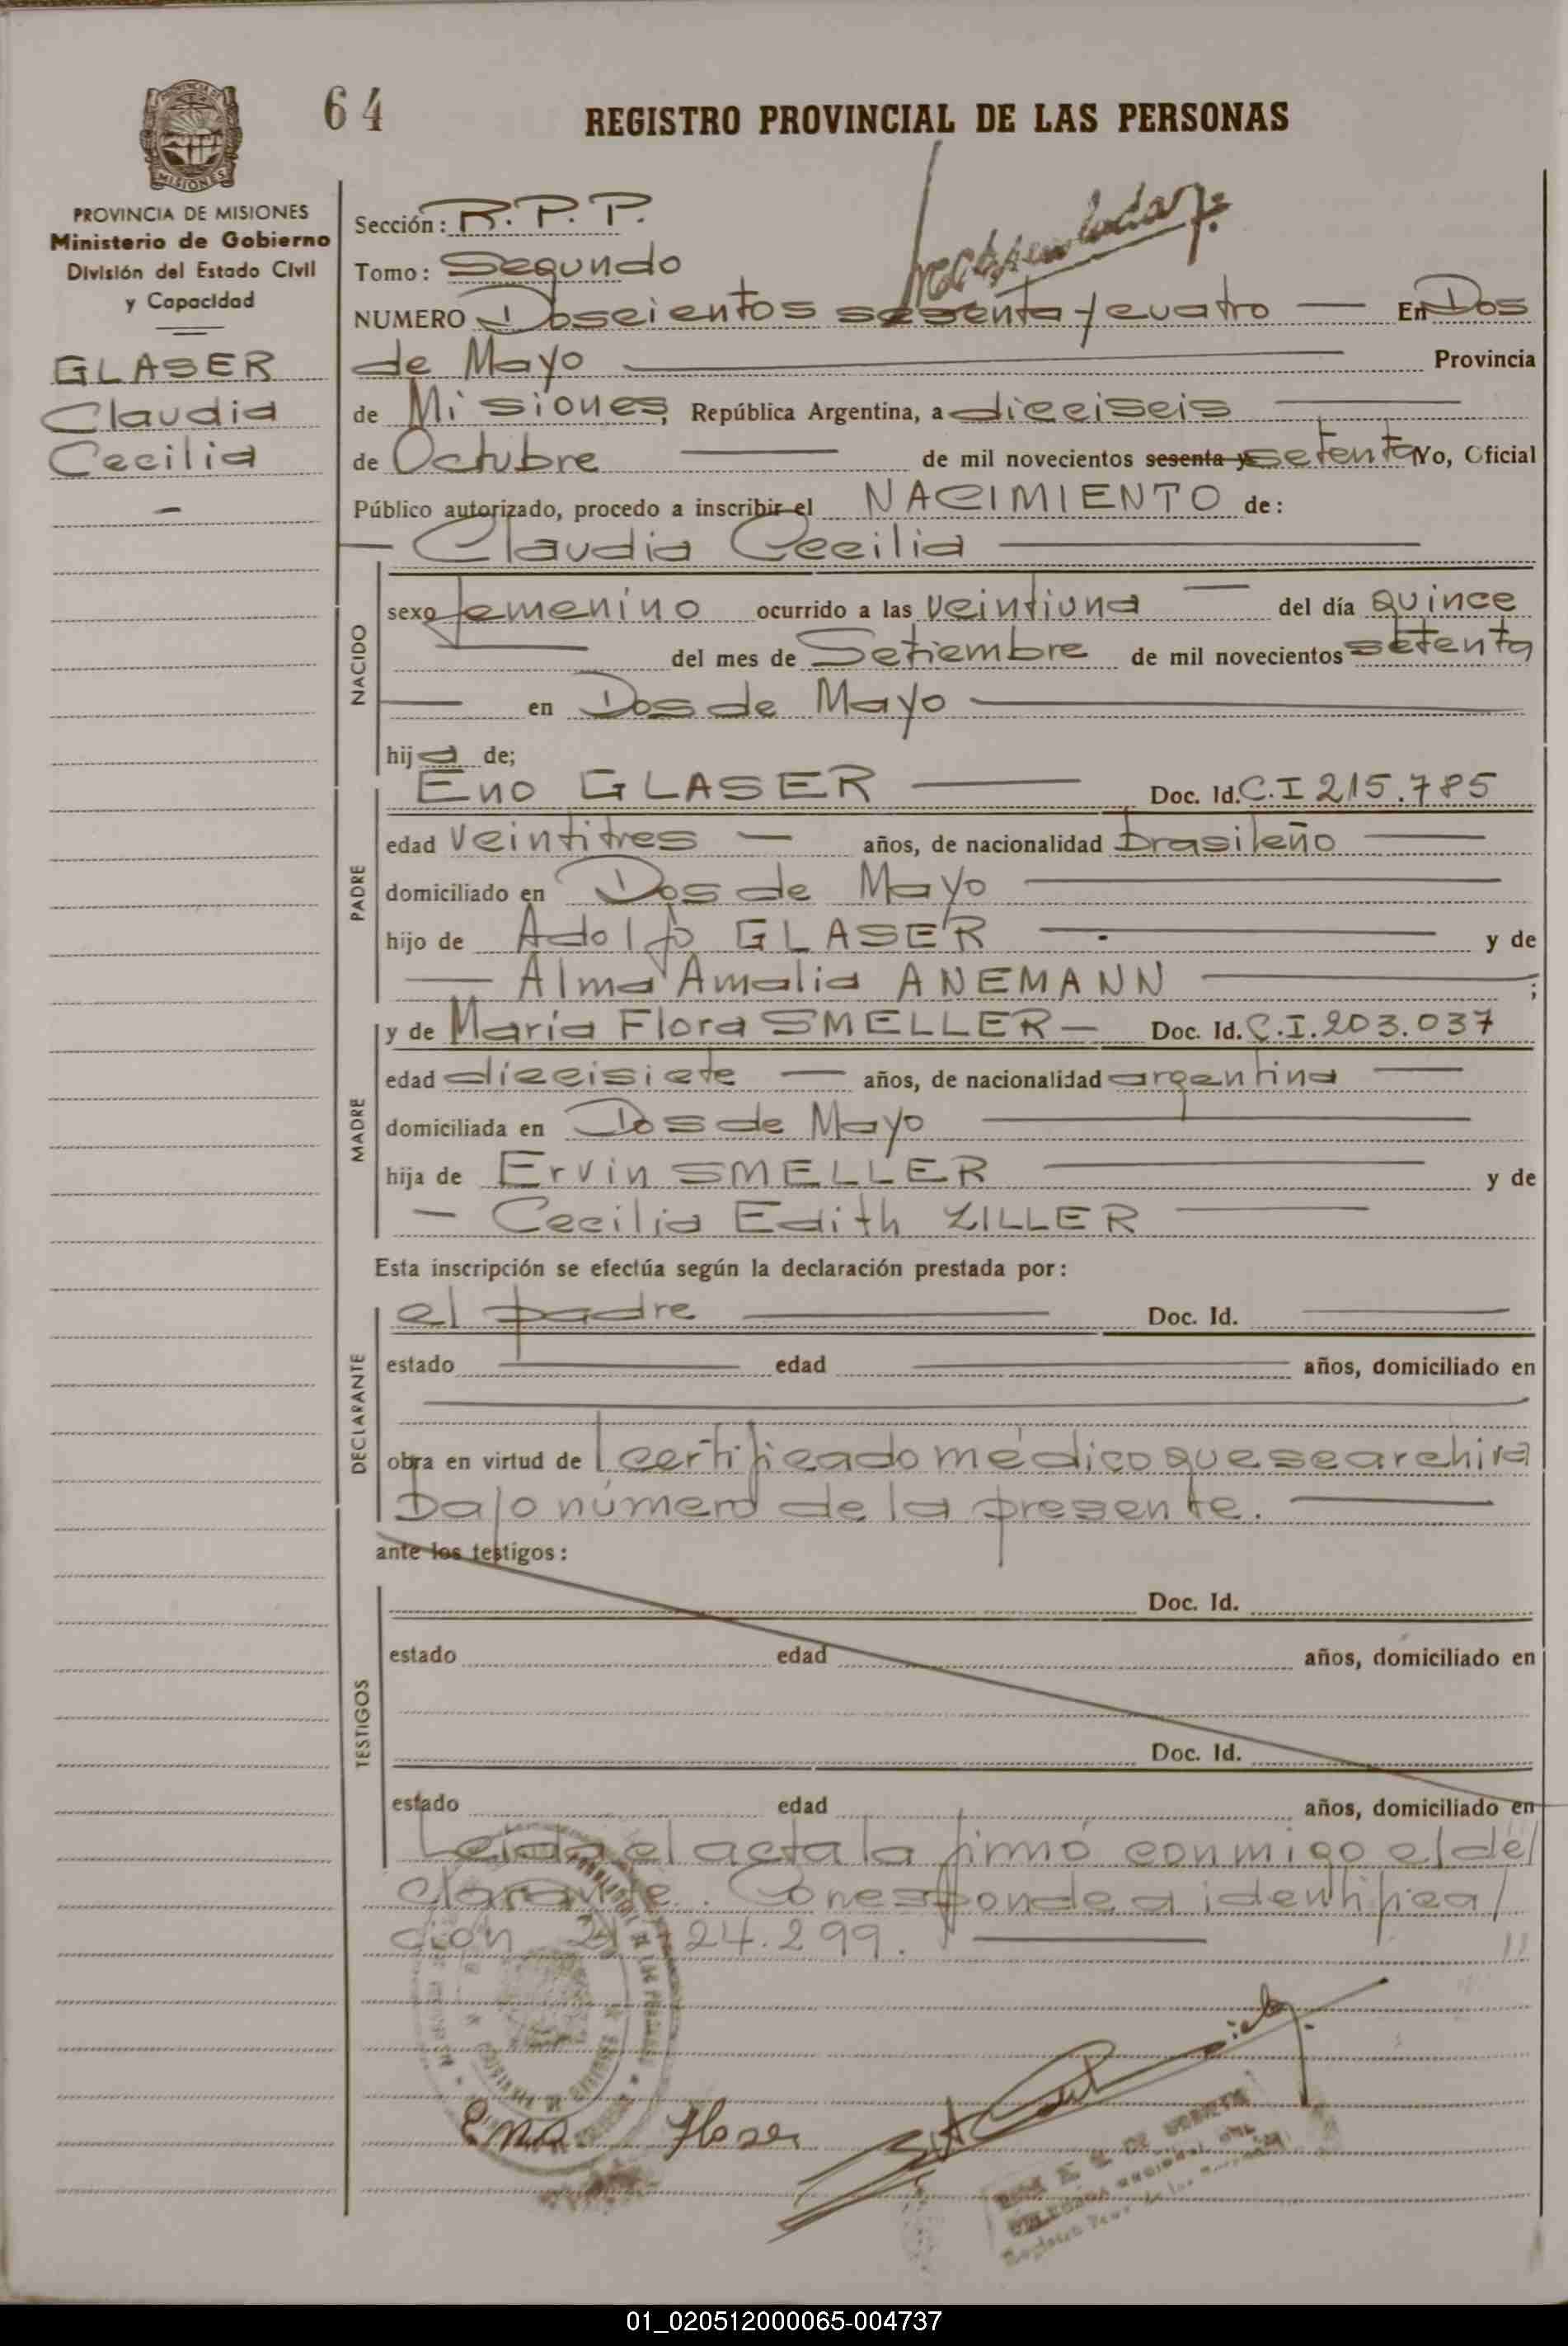 64
REGISTRO PROVINCIAL DE LAS PERSONAS
PROVINCIA DE
MISIONES
PROVINCIA DE MISIONES
Ministerio de Gobierno
División del Estado Civil
y Capacidad
GLASER
Claudia
Cecilia
Sección: R. P. P.
Tomo: Segundo
NUMERO Doscientos sesenta y cuatro — En Dos
de Mayo — Provincia
de Misiones, República Argentina, a dieciseis —
de Octubre — de mil novecientos sesenta y setenta Yo, Oficial
Público autorizado, procedo a inscribir el NACIMIENTO de:
— Claudia Cecilia —
NACIDO
sexo femenino ocurrido a las veintiuna — del día quince
— del mes de Setiembre de mil novecientos setenta
— en Dos de Mayo —
hija de;
PADRE
Eno GLASER — Doc. Id. C.I 215.785
edad veintitres — años, de nacionalidad brasileño —
domiciliado en Dos de Mayo —
hijo de Adolfo GLASER — y de
— Alma Amalia ANEMANN — ;
MADRE
y de María Flora SMELLER — Doc. Id. C.I. 203.037
edad diecisiete — años, de nacionalidad argentina —
domiciliada en Dos de Mayo —
hija de Ervin SMELLER — y de
— Cecilia Edith ZILLER —
Esta inscripción se efectúa según la declaración prestada por:
DECLARANTE
el padre — Doc. Id. —
estado — edad — años, domiciliado en
obra en virtud de certificado médico que se archiva
bajo número de la presente. —
ante los testigos:
TESTIGOS
Doc. Id.
estado edad años, domiciliado en
Doc. Id.
estado edad años, domiciliado en
Leida el acta la firmó conmigo el de/
clarante. Corresponde a identifica/
ción 21 24.299. —
Eno Glaser
01_020512000065-004737